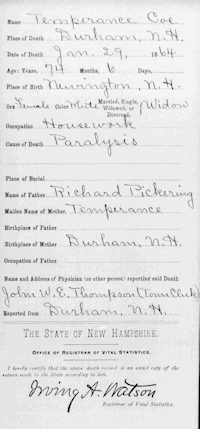 Name Temperance Coe
Place of Death Durham, N.H.
Date of Death Jan. 29, 1864
Age: Years, 74 Months, 6 Days,
Place of Birth Newington, N.H.
Sex Female Color White Married, Single, Widowed, or Divorced, Widow
Occupation Housework
Cause of Death Paralysis
Place of Burial
Name of Father Richard Pickering
Maiden Name of Mother Temperance
Birthplace of Father
Birthplace of Mother Durham, N.H.
Occupation of Father
Name and Address of Physician (or other person) reporting said Death
John W. E. Thompson (Town Clerk)
Reported from Durham, N.H.
THE STATE OF NEW HAMPSHIRE.
OFFICE OF REGISTRAR OF VITAL STATISTICS.
I hereby certify that the above death record is an exact copy of the
return made to the State according to law.
Irving A. Watson
Registrar of Vital Statistics.